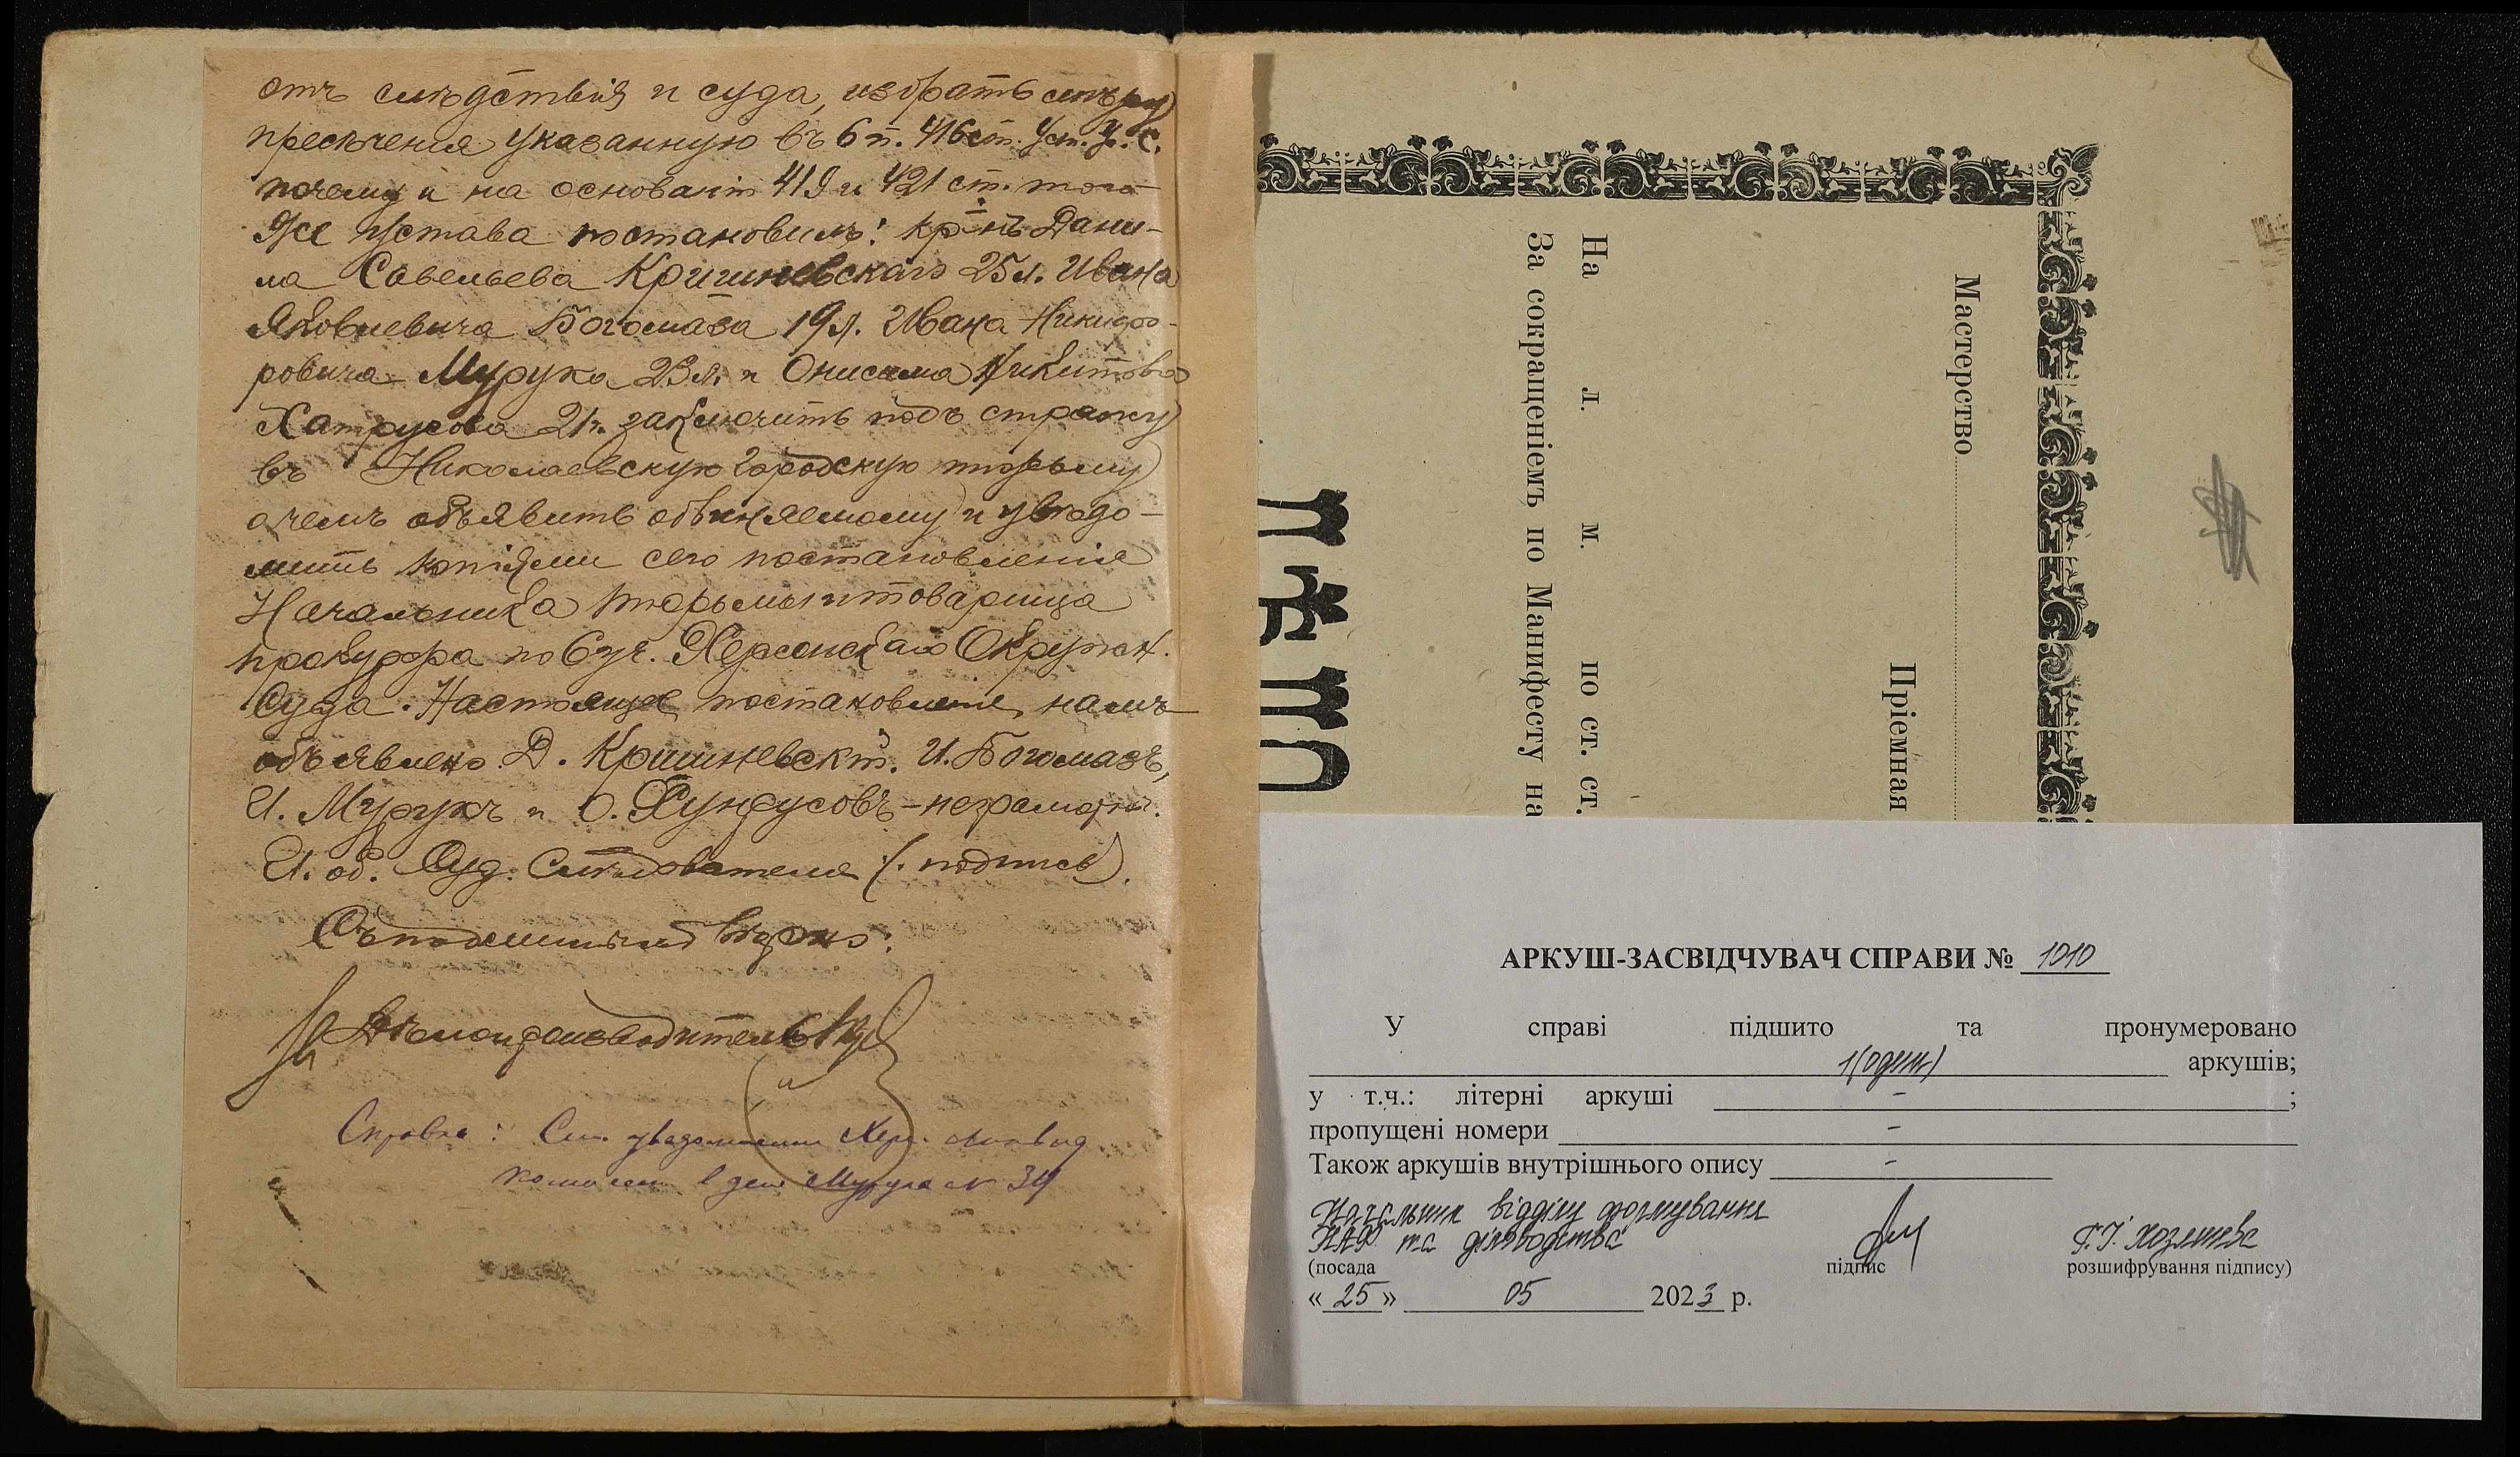 отъ слѣдствія и суда, избрать мѣру
пресѣченія указанную въ 6 п. 416 ст. Уст. У. С.
почему и на основаніи 419 и 421 ст. того
же устава постановилъ: кр-нъ Дани-
ла Савельева Кришневскаго 25 л. Ивана
Яковлевича Богомаза 19 л. Ивана Никифо-
ровича Мурука 23 л. и Онисима Никитова
21 г. заключить подъ стражу
въ Николаевскую городскую тюрьму
о чемъ объявить обвиняемому и увѣдо-
мить копіями сего постановленія
Начальника тюрьмы и товарища
прокурора по 6 уч. Херсонскаго Окружн.
Суда. Настоящее постановленіе намъ
объявлено Д. Кришневскій. И. Богомазъ,
И. Мурукъ и О. неграмотн.
И. об. Суд. Слѣдователя (подпись).
Съ подлиннымъ вѣрно:
Дѣлопроизводитель
Справка: См. увѣдомленіе Хер.
в деле Мурука № 34
На л. м. по ст. ст.
За сокращеніемъ по Манифесту на
Мастерство
Пріемная
АРКУШ-ЗАСВІДЧУВАЧ СПРАВИ № 1010
У справі підшито та пронумеровано
1 (один) аркушів;
у т.ч.: літерні аркуші - ;
пропущені номери -
Також аркушів внутрішнього опису -
Начальник відділу формування
НАФ та діловодства
(посада підпис розшифрування підпису)
« 25 » 05 2023 р.